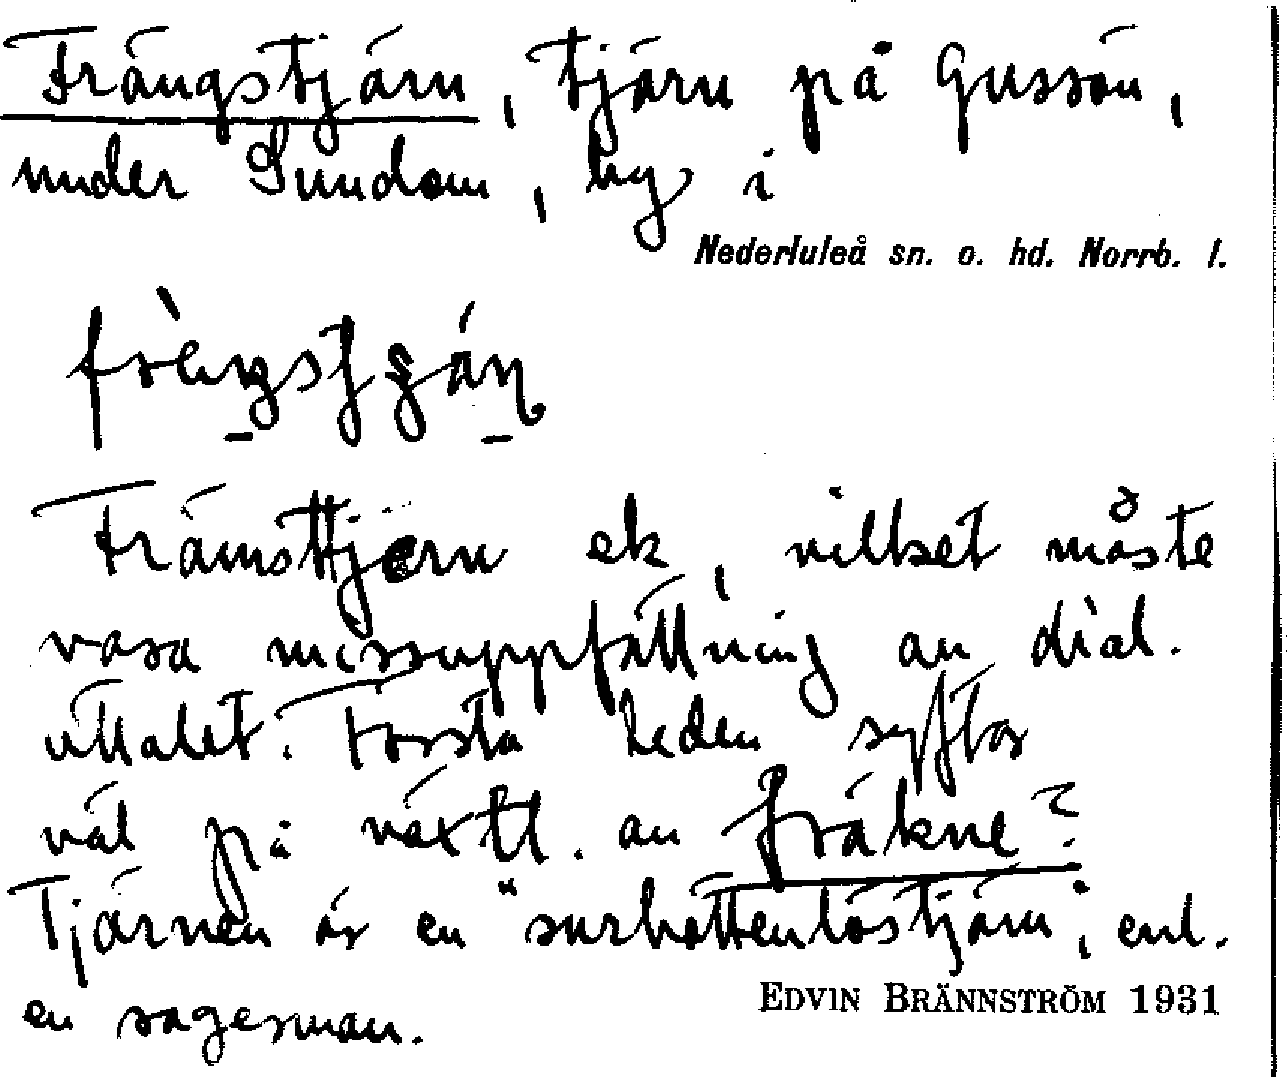 Frängstjärn, tjärn på Gussön,
under Sundom, by i
Nederluleå sn. o. hd. Norrb. l.
Främsttjern ek, vilket måste
vara missuppfattning av dial.
uttalet. Första leden syftar
väl på växtl. av fräkne?
Tjärnen är en "surbottenlöstjärn", enl.
en sagesman.
EDVIN BRÄNNSTRÖM 1931